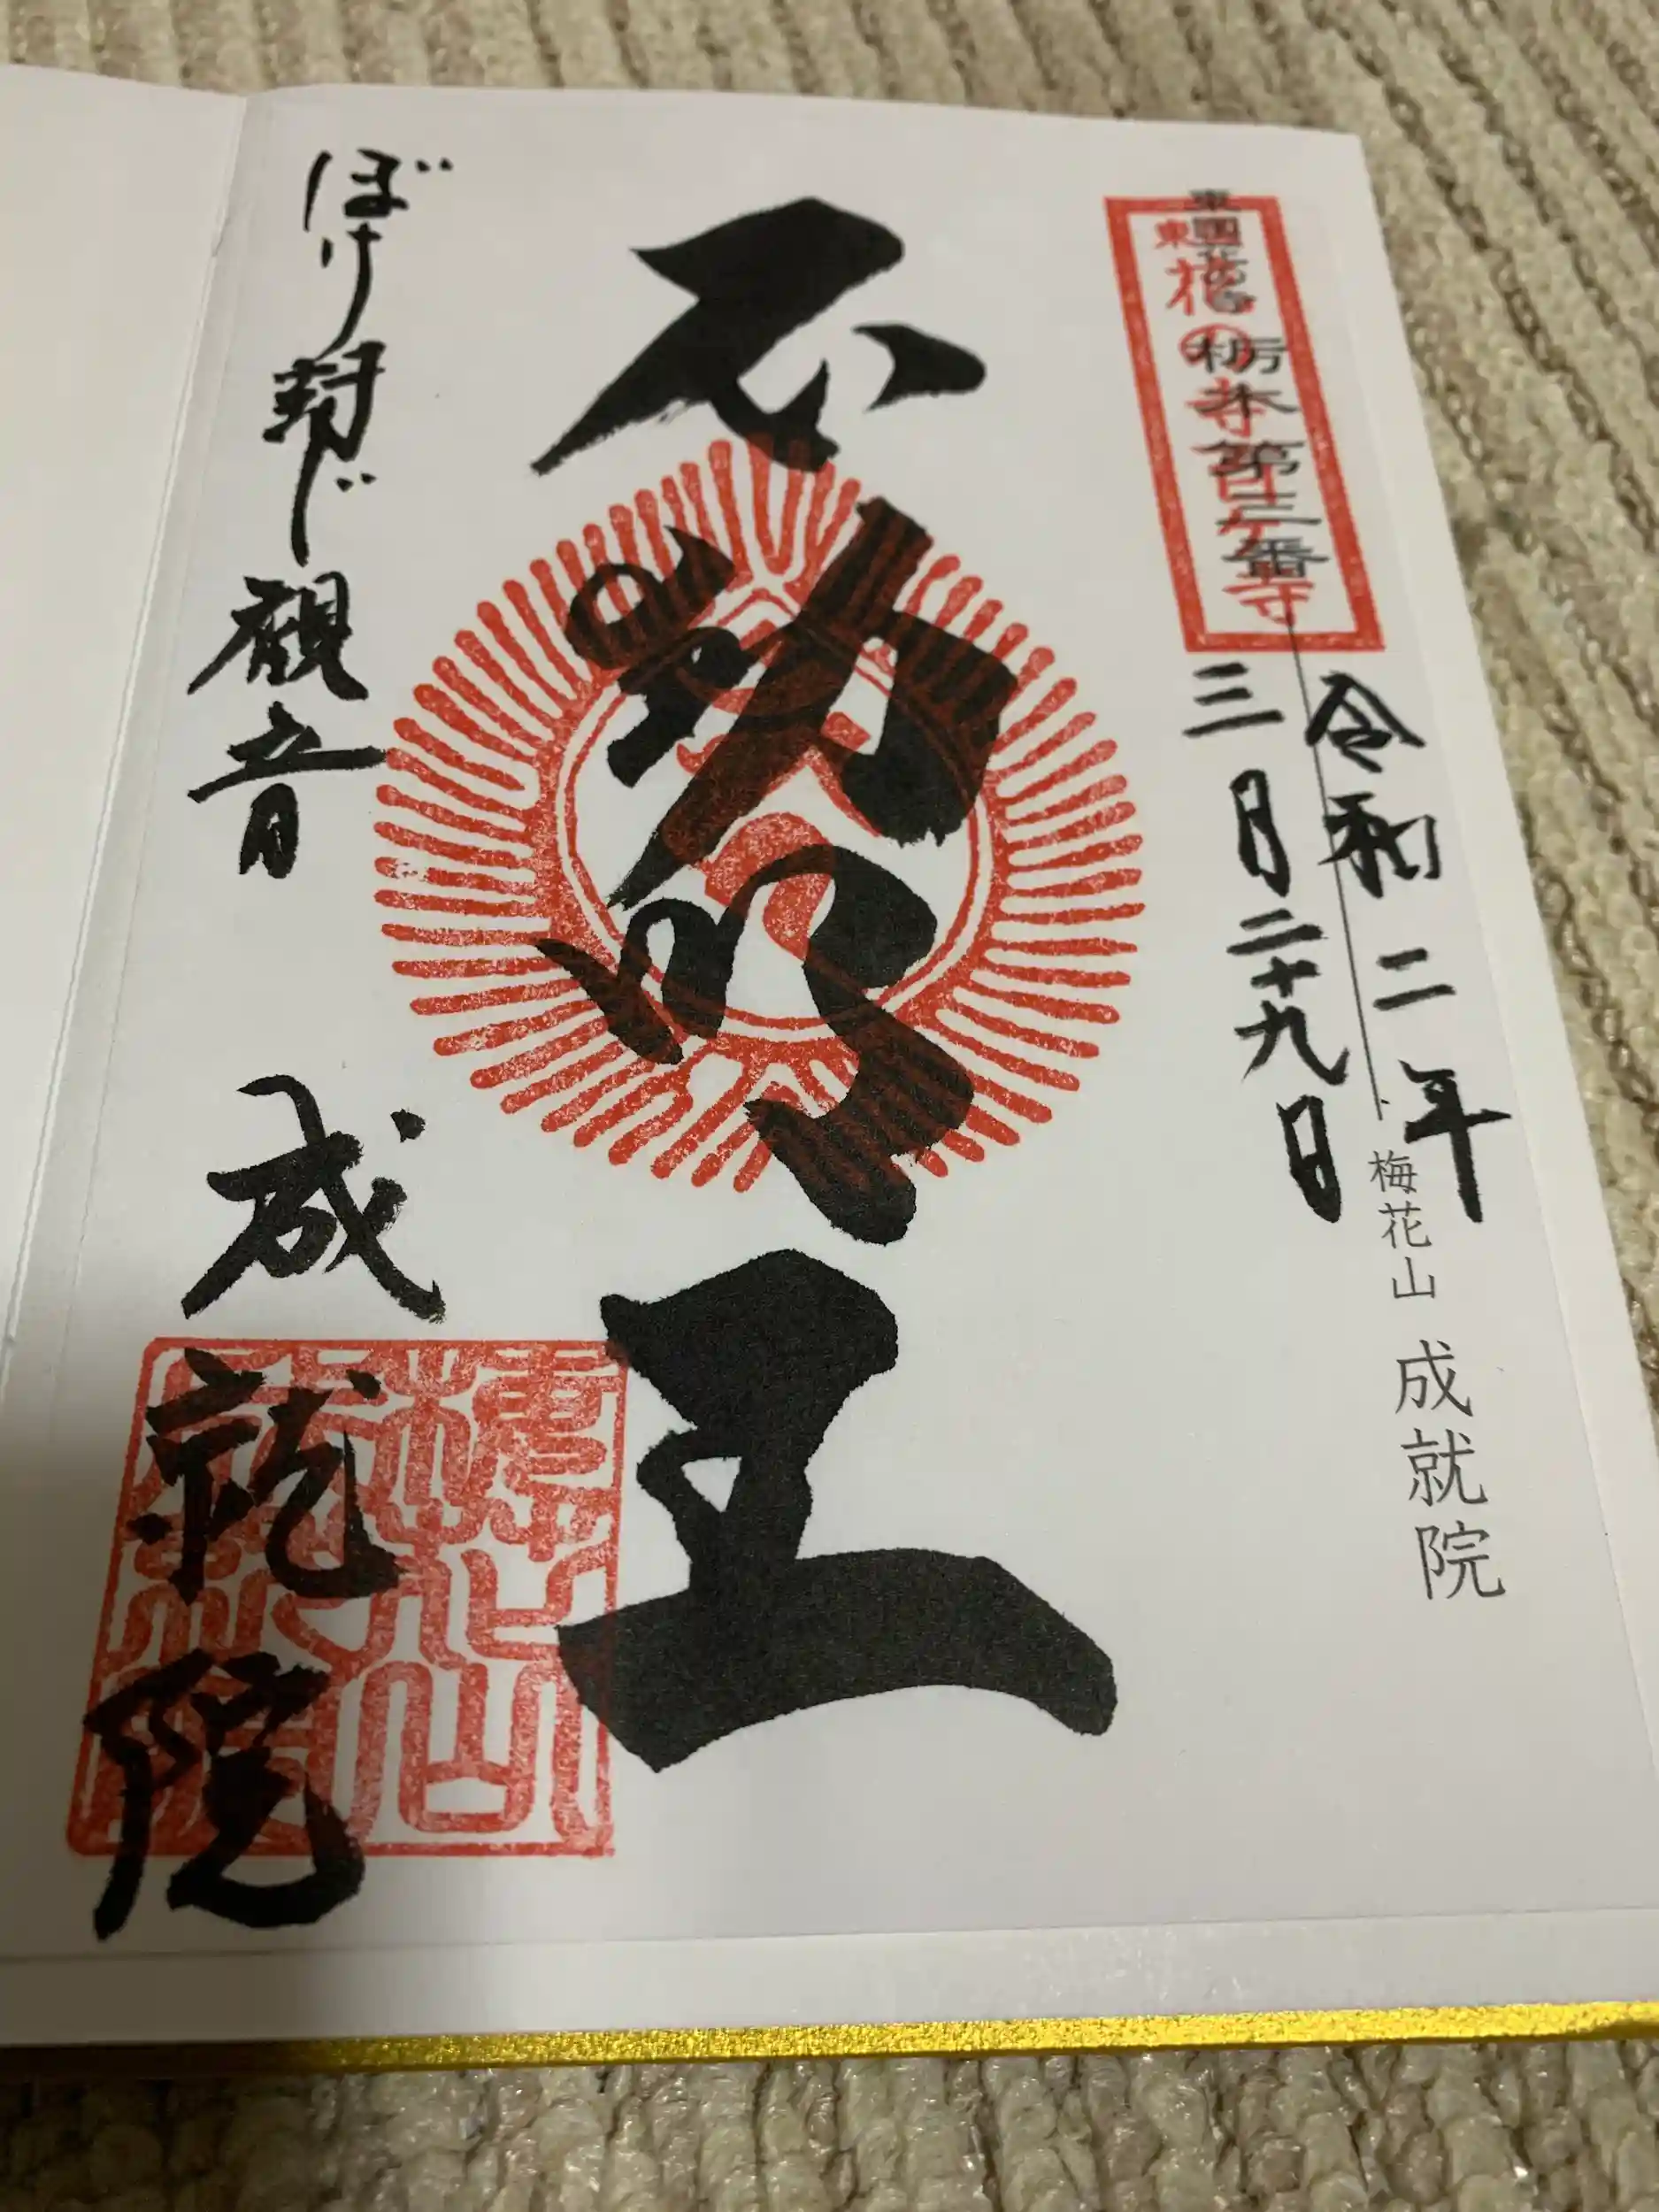 東国花の寺 栃木第三番
東国花の寺百ヶ寺
梅花山 成就院
令和二年
三月二十九日
不動明王
ぼけ封じ観音
成就院